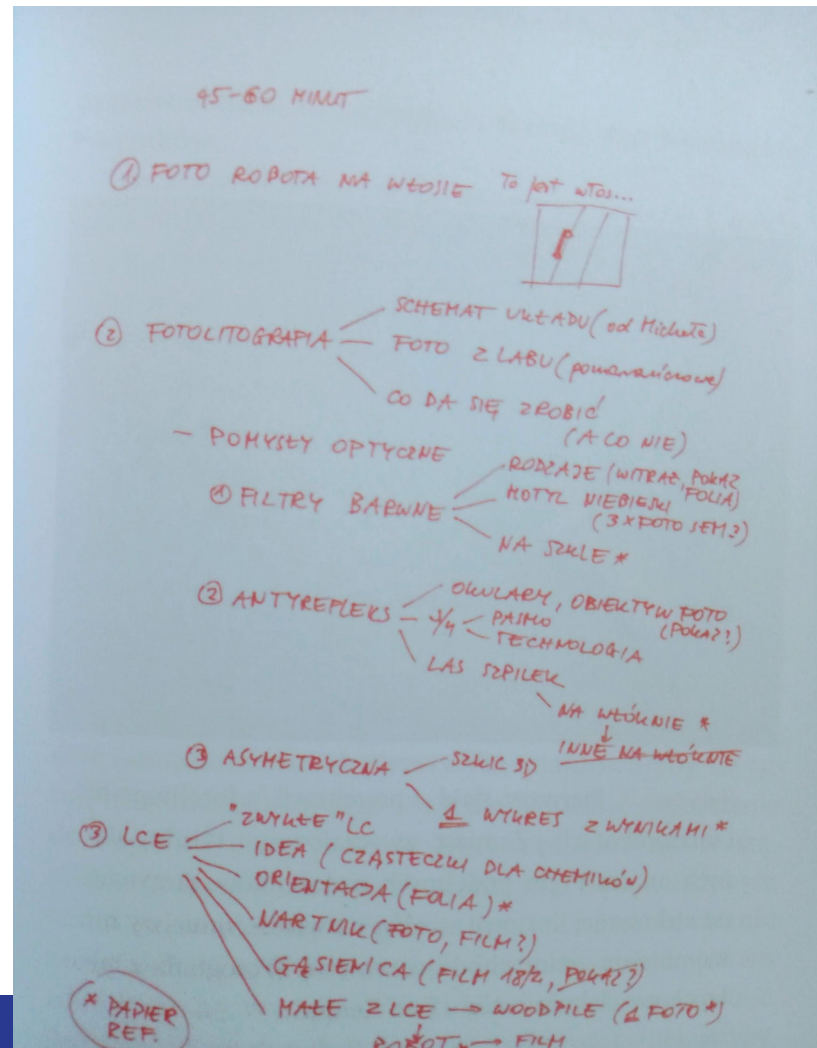 45-60 MINUT
① FOTO ROBOTA NA WŁOSIE To jest włos...
② FOTOLITOGRAFIA
SCHEMAT UKŁADU (od Michała)
FOTO Z LABU (pomarańczowe)
CO DA SIĘ ZROBIĆ
(A CO NIE)
- POMYSŁY OPTYCZNE
① FILTRY BARWNE
RODZAJE (WITRAŻ, POKAZ
FOLIA)
MOTYL NIEBIESKI
(3 x FOTO SEM?)
NA SZKLE *
② ANTYREFLEKS
OKULARY, OBIEKTYW FOTO
(POKAZ?)
λ/4
PASMO
TECHNOLOGIA
LAS SZPILEK
NA WŁÓKNIE *
INNE NA WŁÓKNIE
③ ASYMETRYCZNA
SZKIC 3D
1 WYKRES Z WYNIKAMI *
③ LCE
"ZWYKŁE" LC
IDEA (CZĄSTECZKI DLA CHEMIKÓW)
ORIENTACJA (FOLIA) *
NARTNIK (FOTO, FILM?)
GĄSIENICA (FILM 18/2, POKAZ?)
MAŁE Z LCE → WOODPILE (1 FOTO *)
ROBOT → FILM
* PAPIER
REF.